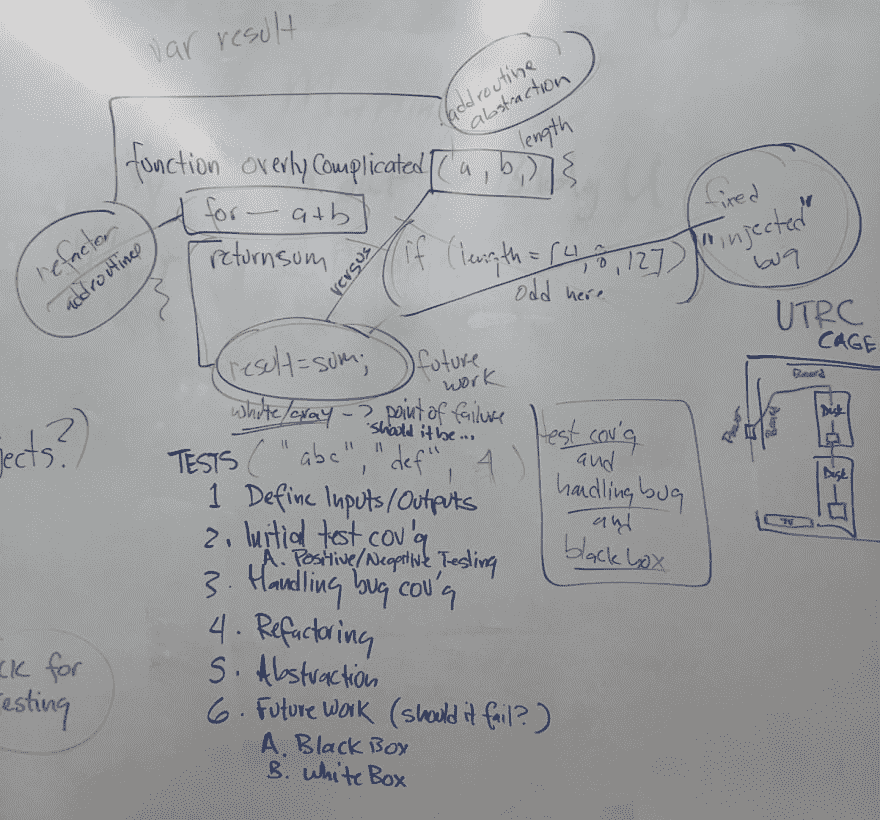 var result
add routine
abstraction
length
function overlyComplicated (a, b,) {
for — a+b
refactor
add routines
}
return sum
versus
if (length = [4, 8, 12])
odd here
fixed
"injected"
bug
result = sum;
future
work
white/gray -> point of failure
should it be ...
TESTS ("abc", "def", 4)
1 Define Inputs/Outputs
2. Initial test cov'g
A. Positive/Negative Testing
3. Handling bug cov'g
4. Refactoring
5. Abstraction
6. Future Work (should it fail?)
A. Black Box
B. White Box
test cov'g
and
handling bug
and
black box
UTRC
CAGE
Board
Board
Power
Desk
Desk
TV
jects?)
ck for
esting